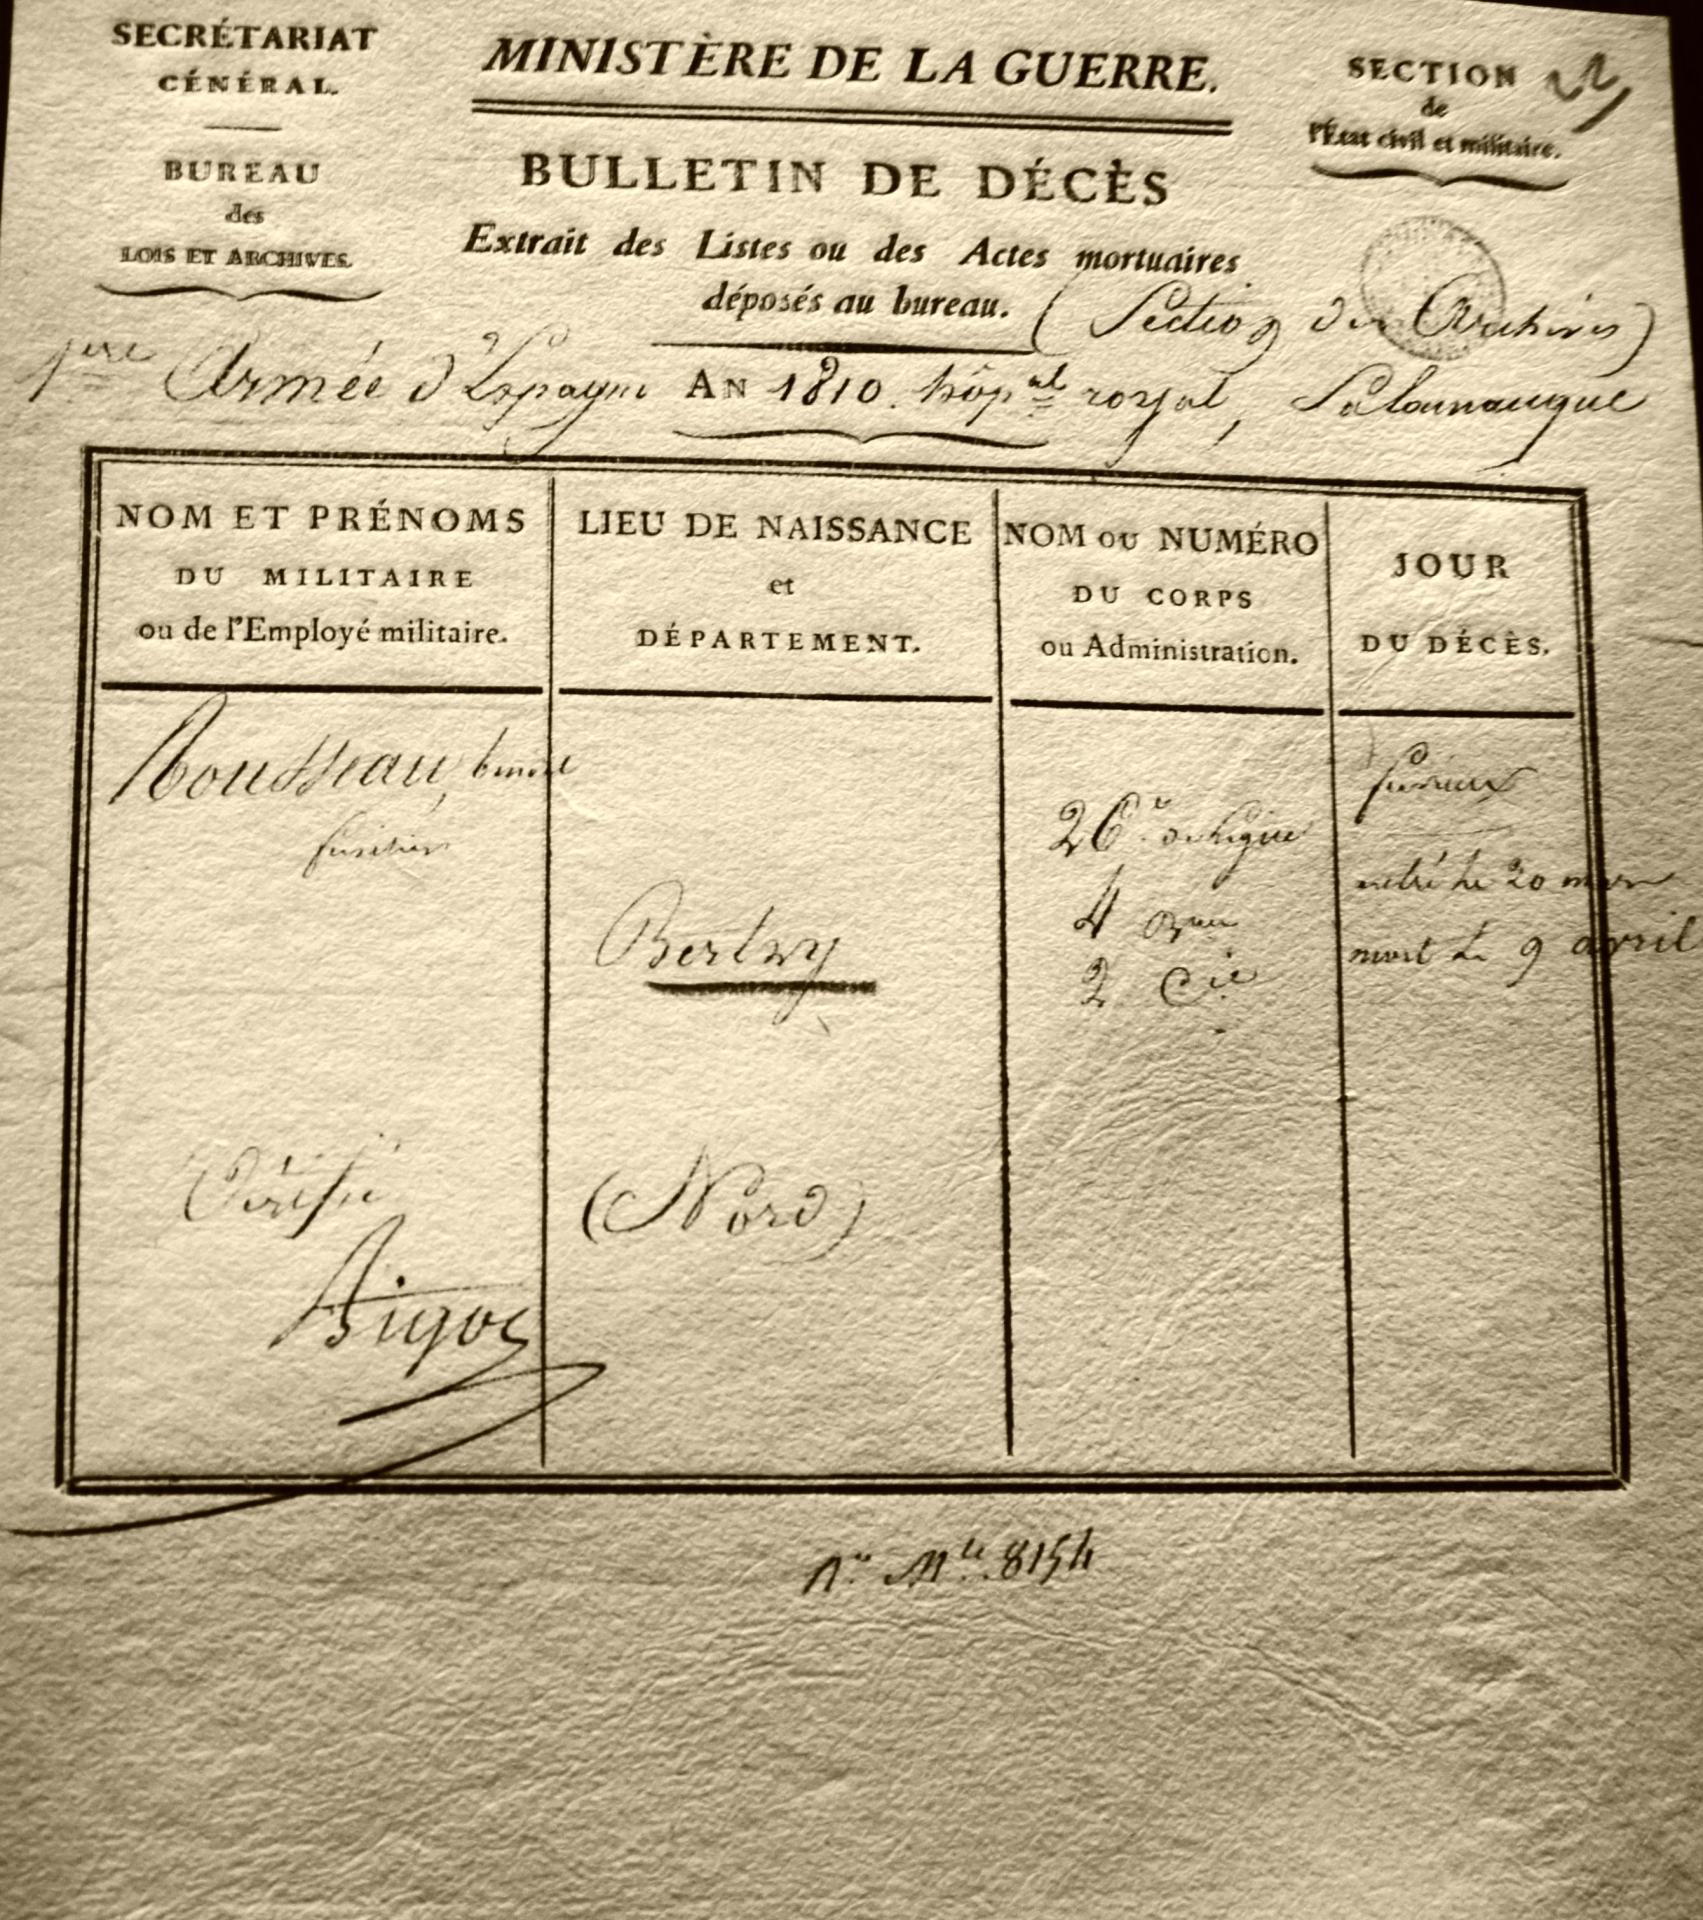 SECRÉTARIAT
GÉNÉRAL.
BUREAU
des
LOIS ET ARCHIVES.
MINISTÈRE DE LA GUERRE.
BULLETIN DE DÉCÈS
Extrait des Listes ou des Actes mortuaires
déposés au bureau. (Section des Archives)
SECTION
de
l'État civil et militaire.
1ere Armée d'Espagne AN 1810. hôpal royal, Salamanque
NOM ET PRÉNOMS
DU MILITAIRE
ou de l'Employé militaire.
LIEU DE NAISSANCE
et
DÉPARTEMENT.
NOM OU NUMÉRO
DU CORPS
ou Administration.
JOUR
DU DÉCÈS.
Rousseau,
fusilier
Bertry
(Nord)
26e de ligne
4 Bon
2 Cie
fiévreux
entré le 20 mars
mort le 9 avril
Vérifié
No Mle 8154